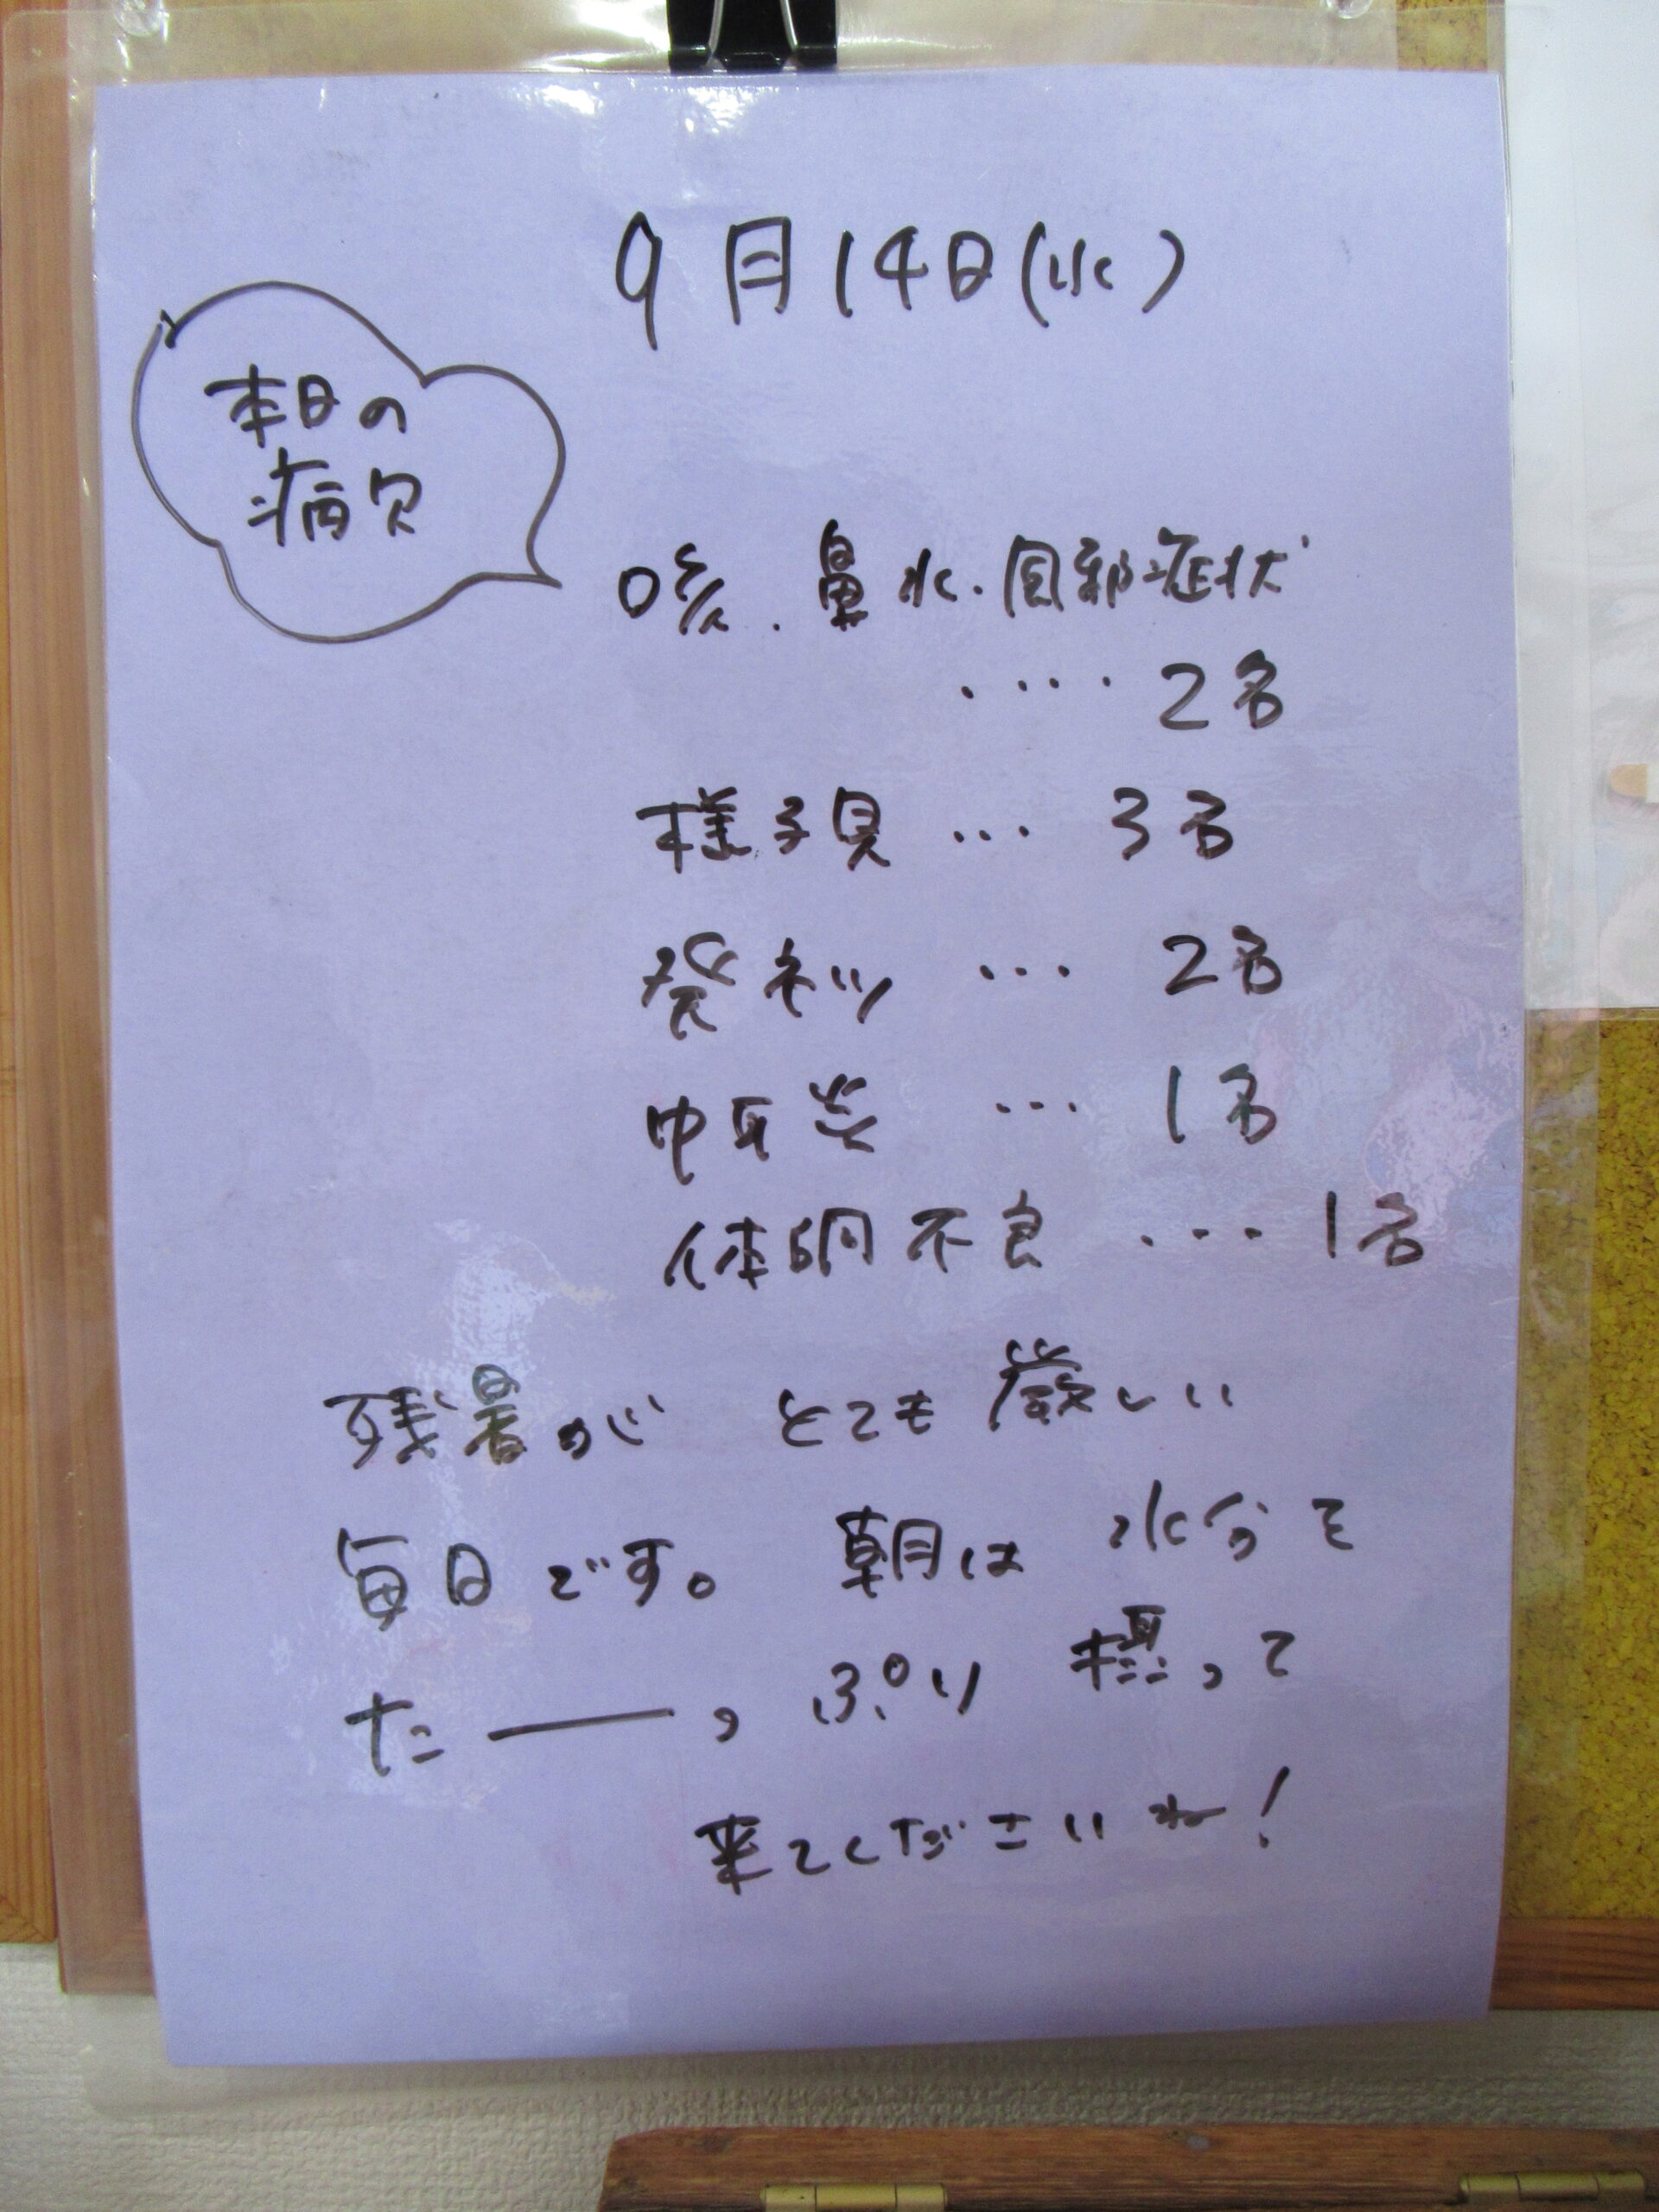 9月14日(水)
本日の
病欠
咳.鼻水.風邪症状
‥‥‥2名
様子見 … 3名
発ネツ … 2名
中耳炎 … 1名
体調不良 … 1名
残暑が とても厳しい
毎日です。 朝は 水分を
たーっぷり 摂って
来てくださいね!